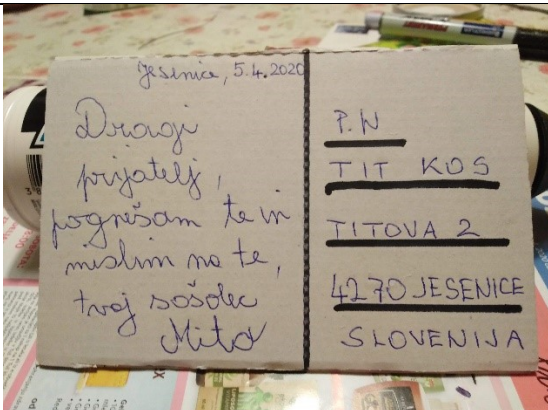 Jesenice, 5.4.2020
Dragi
prijatelj,
pogrešam te in
mislim na te,
tvoj sošolec
Mita
P.N
TIT KOS
TITOVA 2
4270 JESENICE
SLOVENIJA